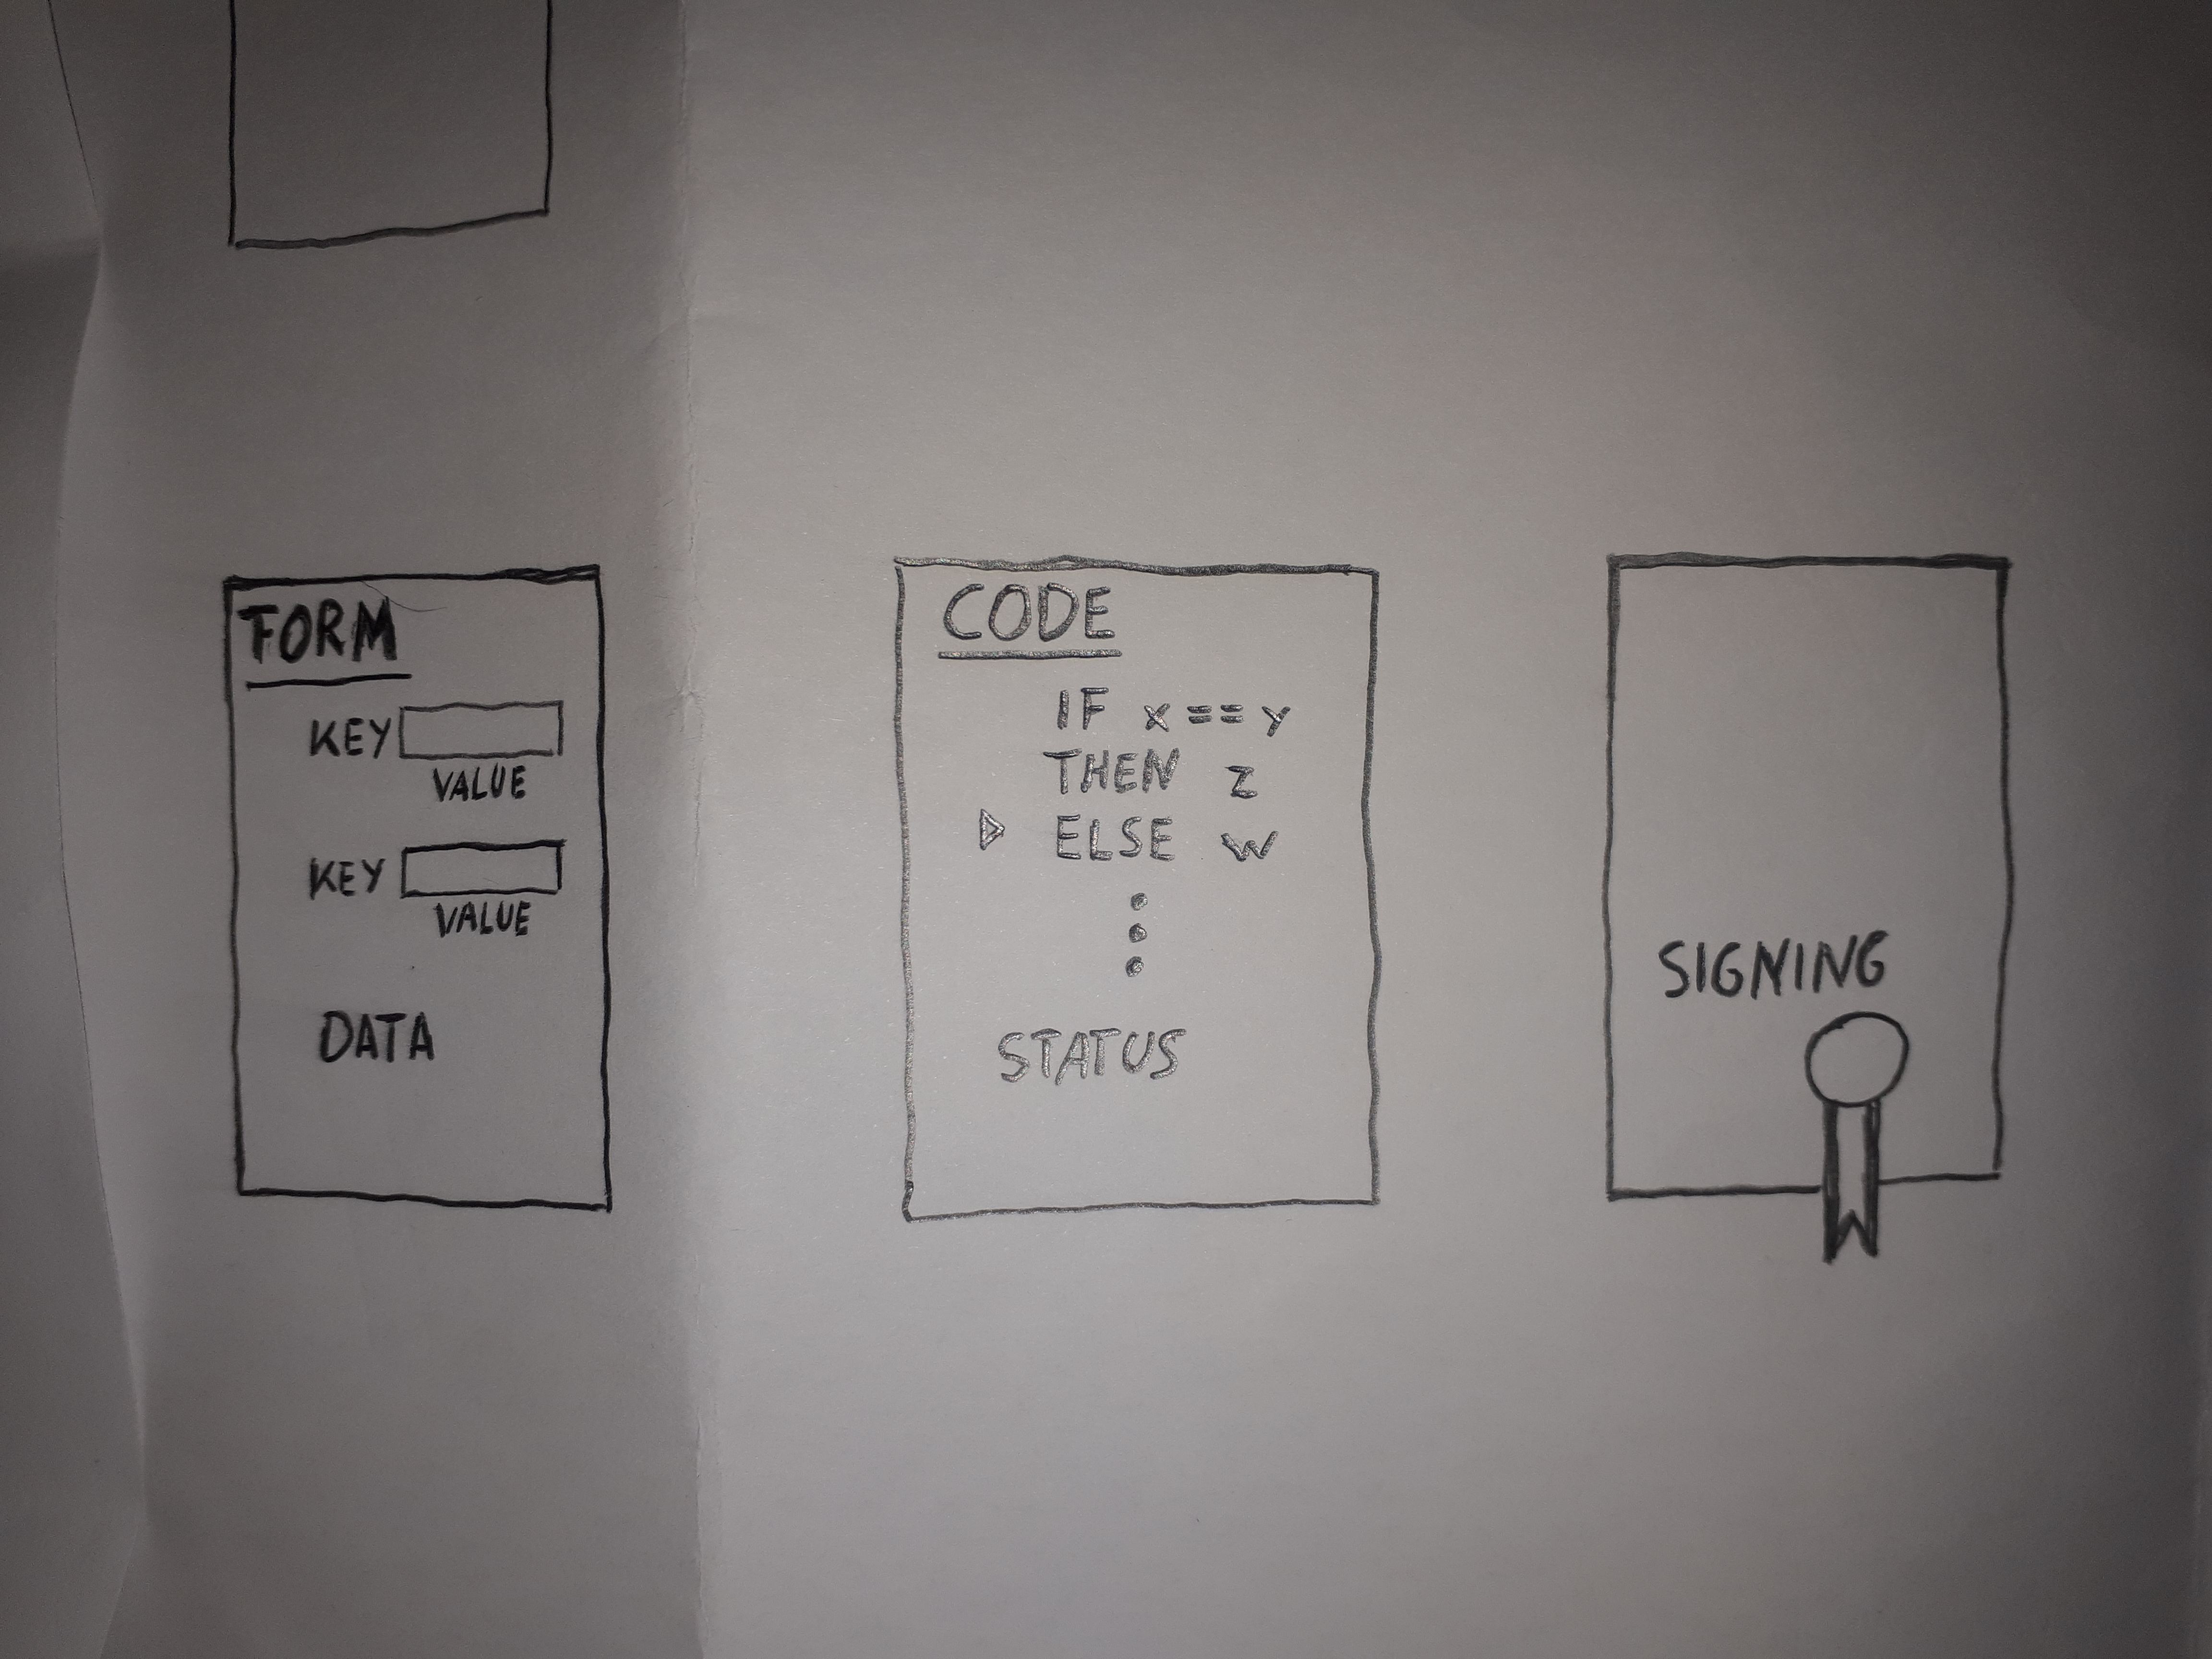 FORM
KEY
VALUE
KEY
VALUE
DATA
CODE
IF x == y
THEN z
ELSE w
STATUS
SIGNING